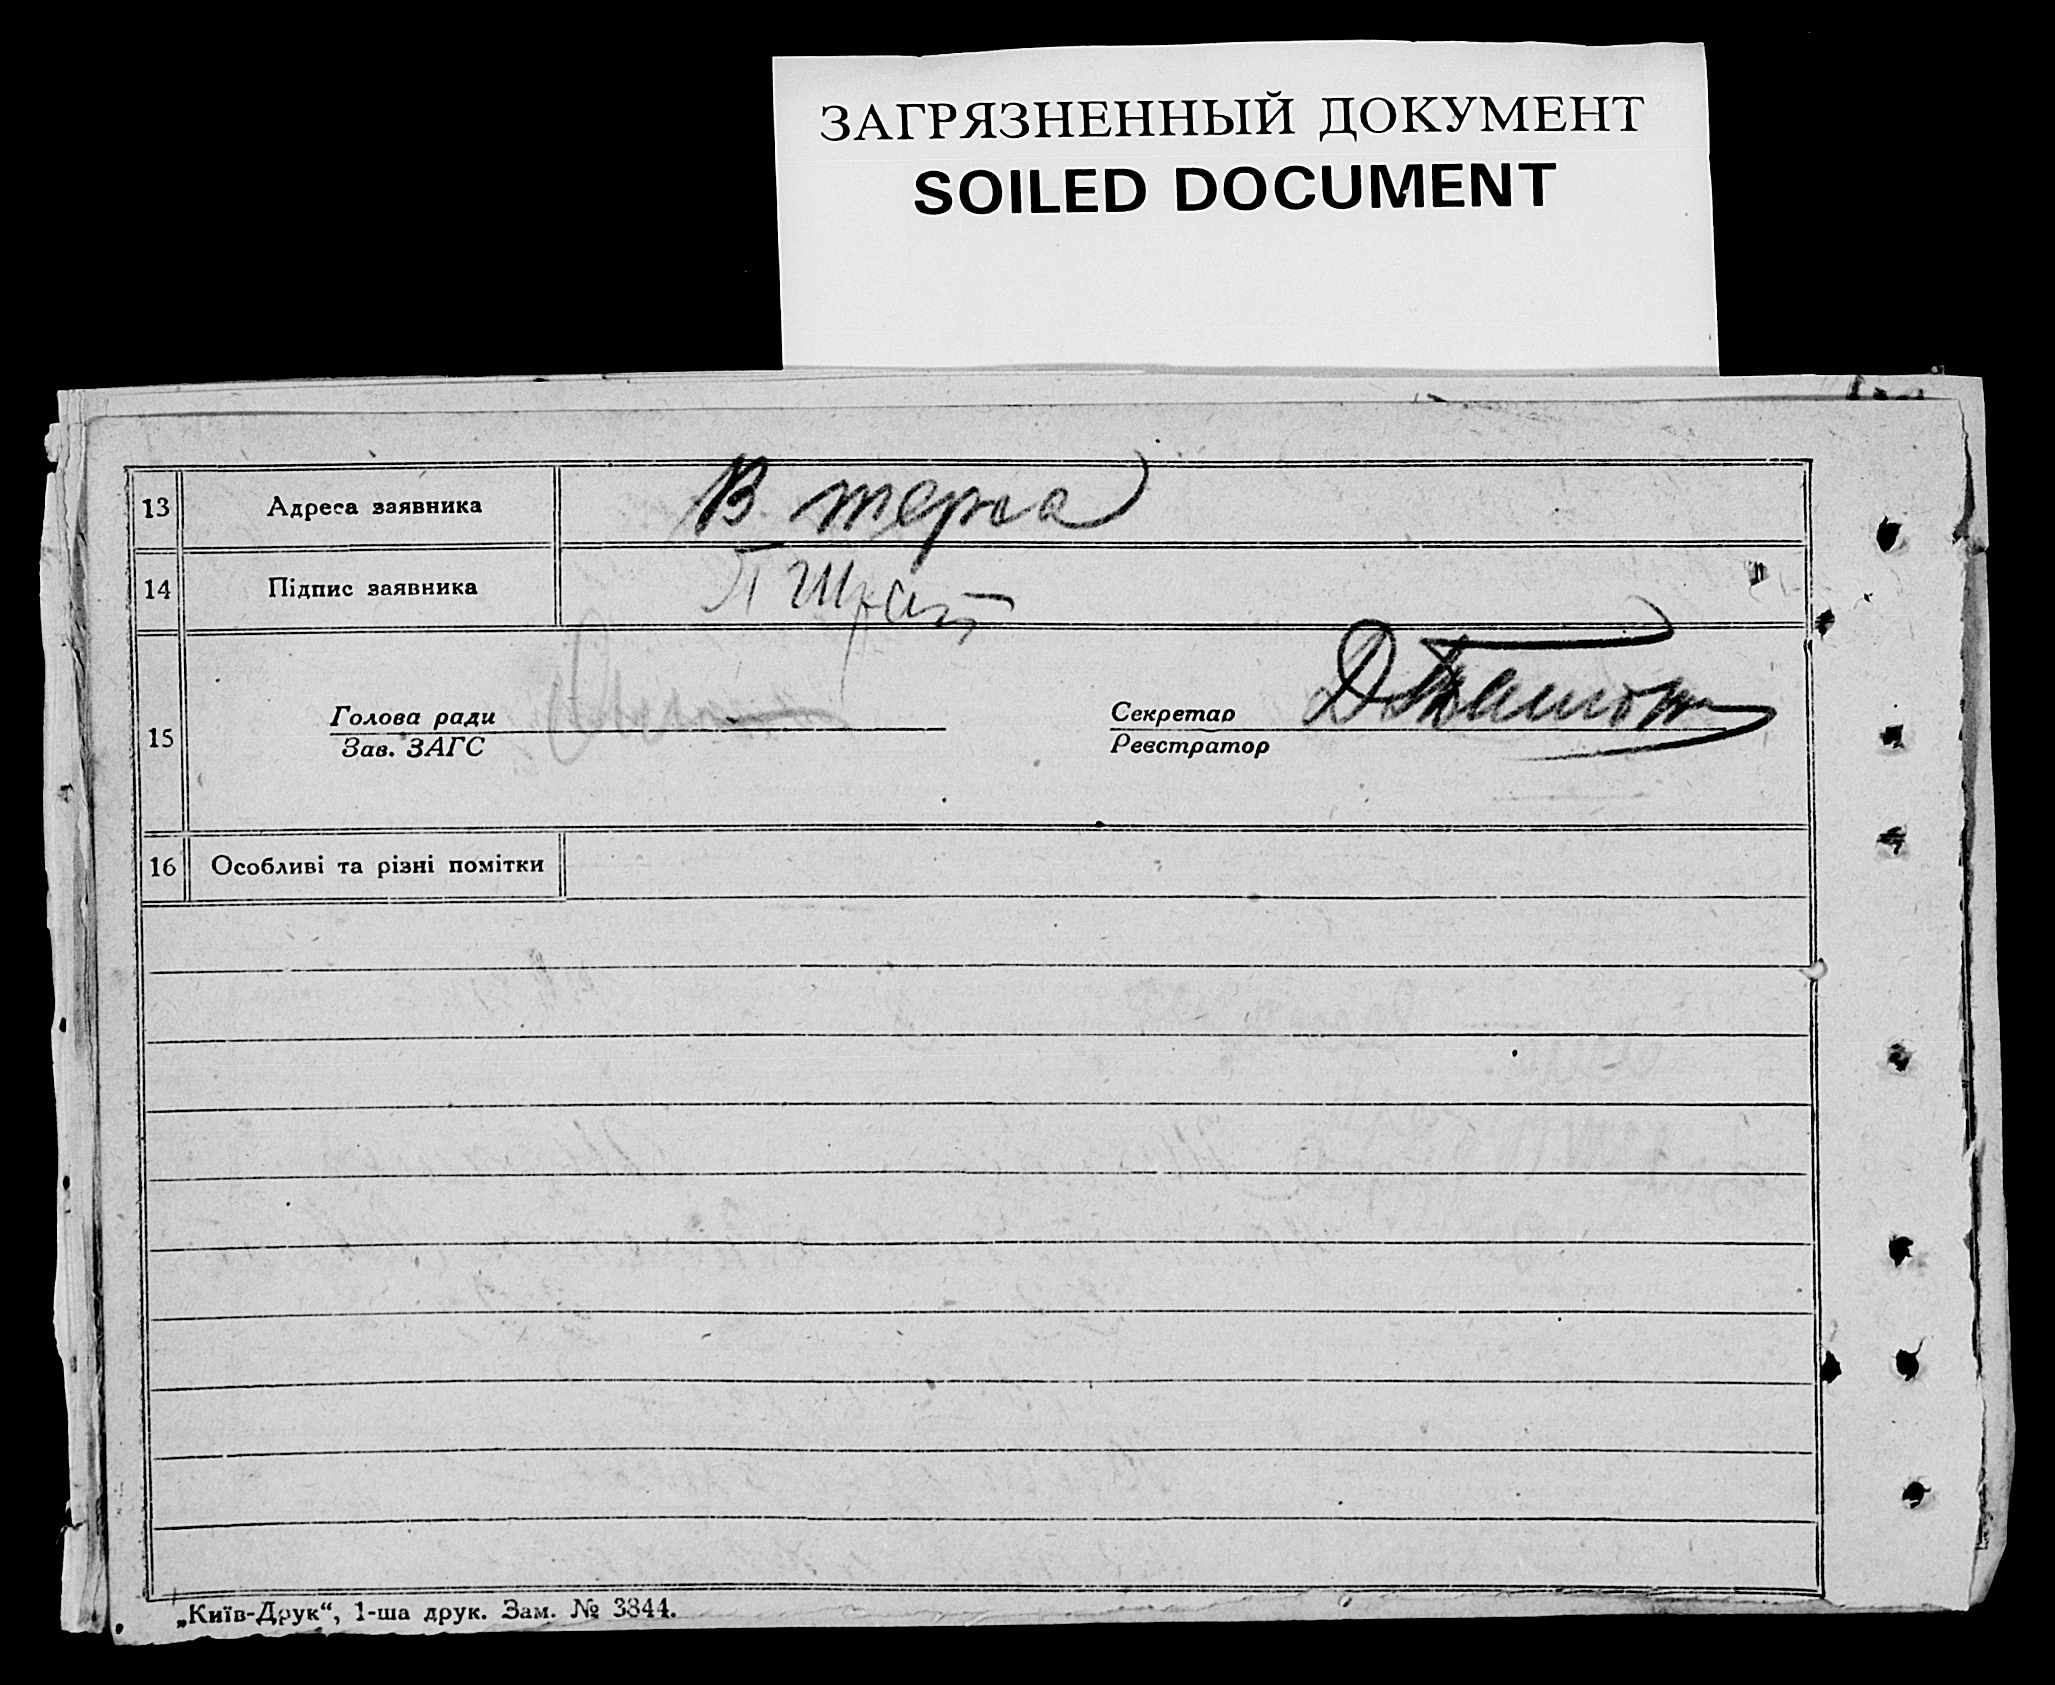 ЗАГРЯЗНЕННЫЙ ДОКУМЕНТ
SOILED DOCUMENT
13 Адреса заявника В терна
14 Підпис заявника
15 Голова ради Секретар
Зав. ЗАГС Реєстратор
16 Особливі та різні помітки
„Київ-Друк“, 1-ша друк. Зам. № 3844.